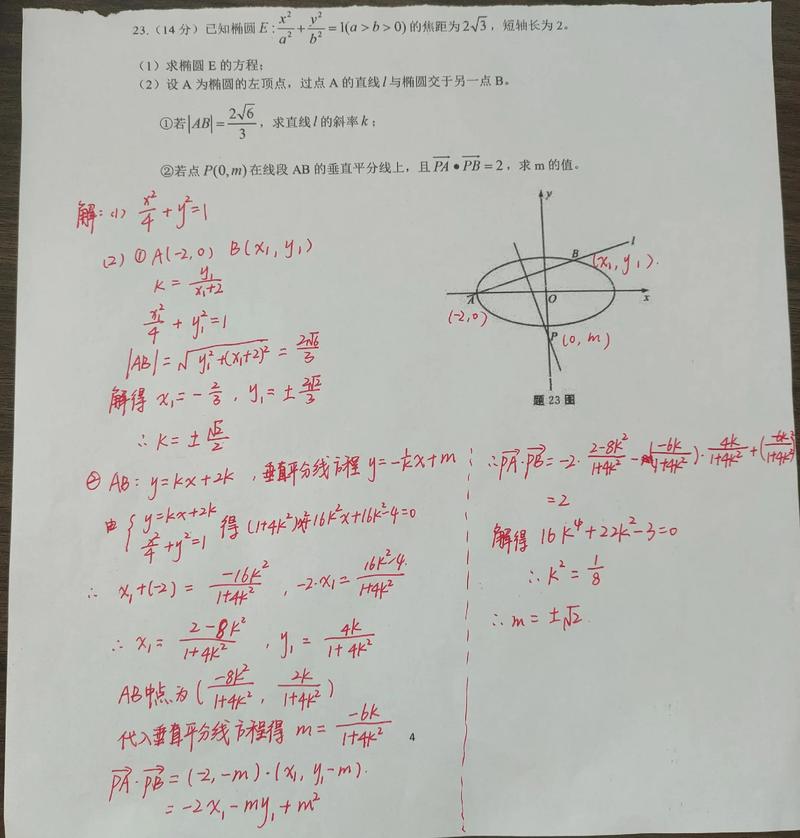 23.（14 分）已知椭圆 E : x²/a² + y²/b² = 1(a > b > 0) 的焦距为 2√3，短轴长为 2。
（1）求椭圆 E 的方程；
（2）设 A 为椭圆的左顶点，过点 A 的直线 l 与椭圆交于另一点 B。
①若|AB| = 2√6/3，求直线 l 的斜率 k；
②若点 P(0, m) 在线段 AB 的垂直平分线上，且 PA→ • PB→ = 2，求 m 的值。
解：(1) x²/4 + y² = 1
(2) ① A(-2, 0) B(x₁, y₁)
k = y₁/(x₁+2)
x₁²/4 + y₁² = 1
|AB| = √(y₁²+(x₁+2)²) = 2√6/3
解得 x₁ = -2/3 , y₁ = ± 2√2/3
∴ k = ± √2/2
② AB: y = kx + 2k , 垂直平分线方程 y = -1/k x + m
由 { y = kx + 2k
x²/4 + y² = 1 得 (1+4k²)x²+16k²x+16k²-4=0
∴ x₁+(-2) = -16k²/(1+4k²) , -2·x₁ = (16k²-4)/(1+4k²)
∴ x₁ = (2-8k²)/(1+4k²) , y₁ = 4k/(1+4k²)
AB中点为 (-8k²/(1+4k²) , 2k/(1+4k²))
代入垂直平分线方程得 m = -6k/(1+4k²)
PA→·PB→ = (-2, -m)·(x₁, y₁-m).
= -2x₁ - my₁ + m²
y
l
B
(x₁, y₁).
A
O
x
(-2,0)
P
(0, m)
题 23 图
∴ PA→·PB→ = -2·(2-8k²)/(1+4k²) - (-6k/(1+4k²))·4k/(1+4k²) + (-6k/(1+4k²))²
= 2
解得 16k⁴+22k²-3=0
∴ k² = 1/8
∴ m = ±√2
4